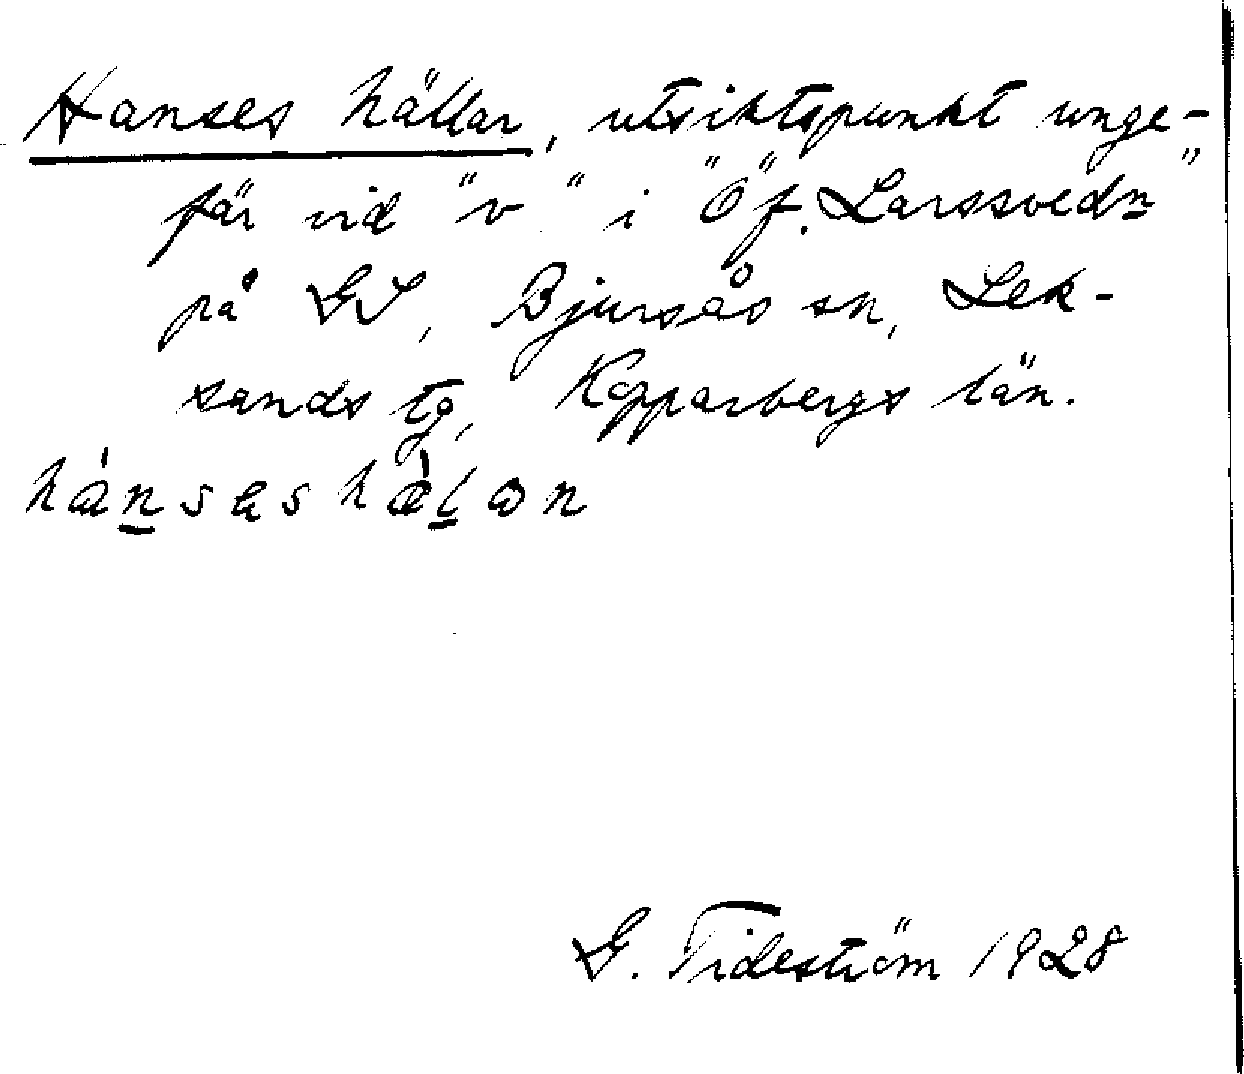 Hanses hällar, utsiktspunkt unge-
fär vid "v" i "Öf. Larssvedn"
på GS, Bjursås sn, Lek-
sands tg, Kopparbergs län.
G. Tideström 1928